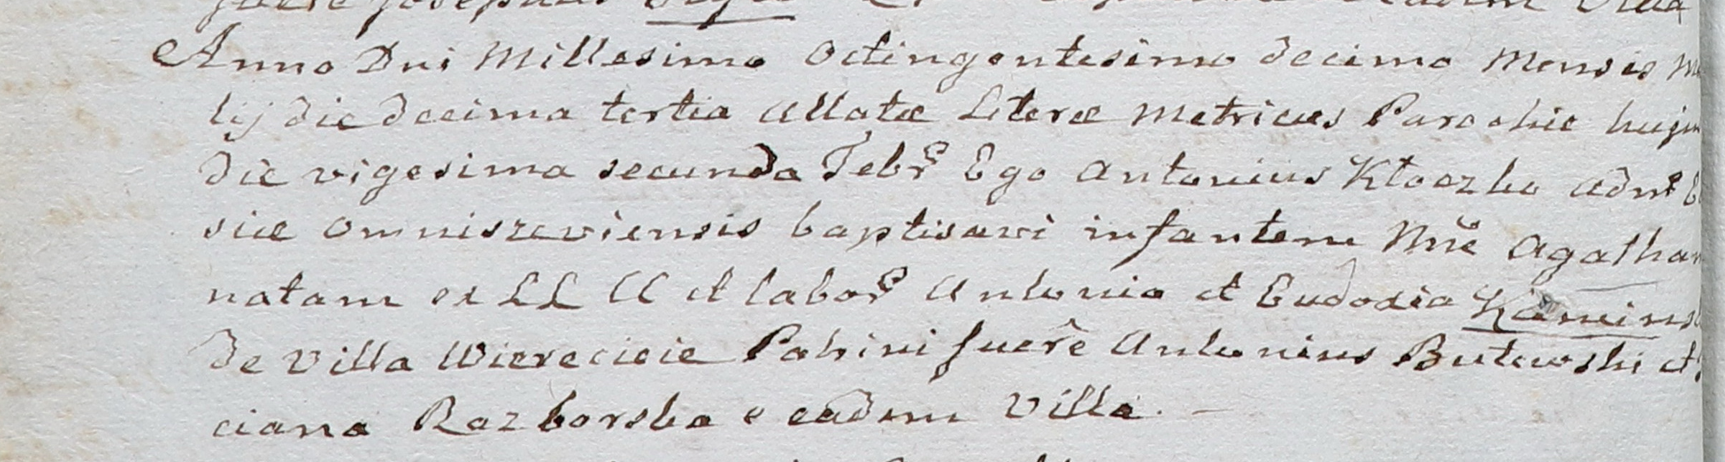 fuere Josephus
Anno Dni Millesimo Octingentesimo decimo Mensis
lij die decima tertia allatæ Literæ Metrices Parochie hujus
die vigesima secunda Febr Ego Antonius Kłoczko Admr
siæ Omniszeviensis baptisavi infantem Nne Agatham
natam ex LL CC et labor Antonio et Eudoxia Kamins
de Villa Wierecieie Patrini fuere Antonius Butowski et
ciana Razborska e eadem Villa. —